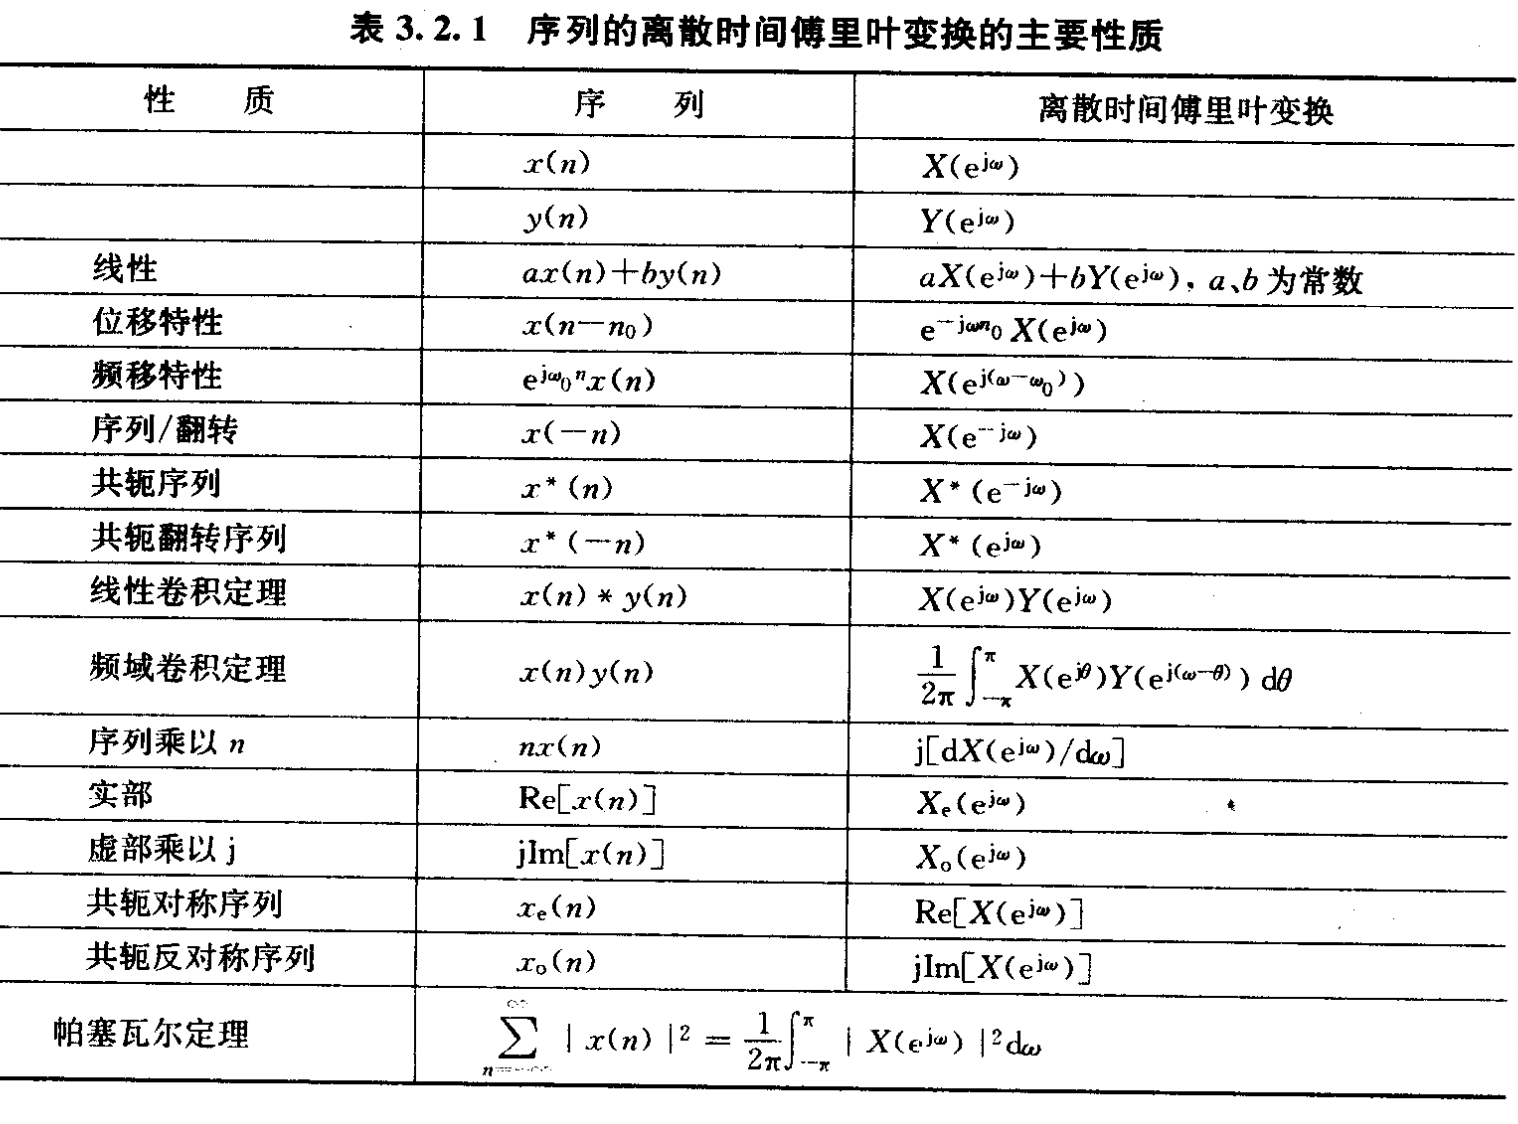 表 3.2.1 序列的离散时间傅里叶变换的主要性质
性 质 序 列 离散时间傅里叶变换
x(n) X(e^{jω})
y(n) Y(e^{jω})
线性 ax(n)+by(n) aX(e^{jω})+bY(e^{jω}), a、b 为常数
位移特性 x(n-n₀) e^{-jωn₀}X(e^{jω})
频移特性 e^{jω₀n}x(n) X(e^{j(ω-ω₀)})
序列/翻转 x(-n) X(e^{-jω})
共轭序列 x*(n) X*(e^{-jω})
共轭翻转序列 x*(-n) X*(e^{jω})
线性卷积定理 x(n)*y(n) X(e^{jω})Y(e^{jω})
频域卷积定理 x(n)y(n) \frac{1}{2π}∫_{-π}^{π}X(e^{jθ})Y(e^{j(ω-θ)})dθ
序列乘以 n nx(n) j[dX(e^{jω})/dω]
实部 Re[x(n)] Xₑ(e^{jω})
虚部乘以 j jIm[x(n)] Xₒ(e^{jω})
共轭对称序列 xₑ(n) Re[X(e^{jω})]
共轭反对称序列 xₒ(n) jIm[X(e^{jω})]
帕塞瓦尔定理 ∑_{n=-∞}^{∞}|x(n)|²=\frac{1}{2π}∫_{-π}^{π}|X(e^{jω})|²dω